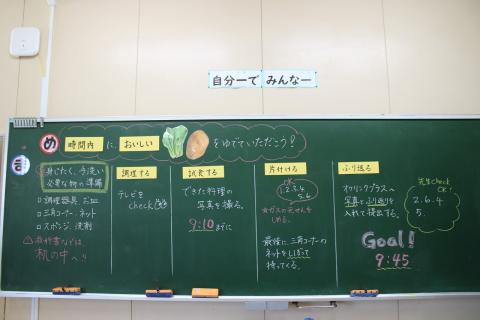 自分ーで みんなー
め 時間内 に おいしい をゆでていただこう!
身じたく、手洗い
必要な物の準備
□調理器具、お皿
□三角コーナー、ネット
□スポンジ、洗剤
⚠教科書などは、
机の中へ!!
調理する
テレビを
check
試食する
できた料理の
写真を撮る。
9:10までに
片付ける
1.2.3.4
5.6
※ガスの元せんを
しめる。
最後に、三角コーナーの
ネットをしぼって
持ってくる。
ふり返る
オクリンクプラスへ
写真とふり返りを
入れて提出する。
Goal!
9:45
先生check
OK!
2.6.4
5.